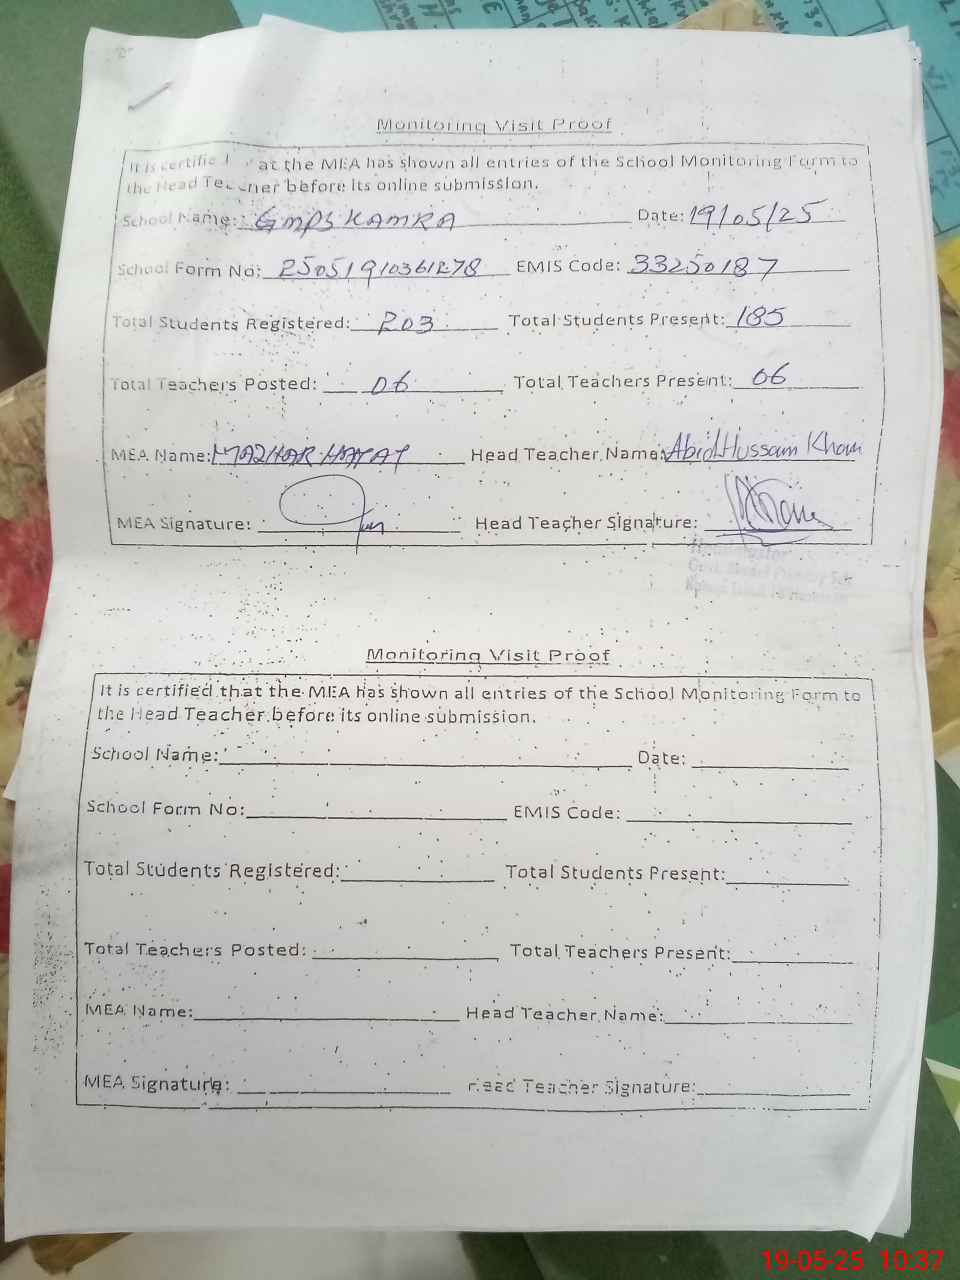 Monitoring Visit Proof
It is certified at the MEA has shown all entries of the School Monitoring Form to
the Head Teacher before its online submission.
School Name: GMPS KAMRA Date: 19/05/25
School Form No: 25051910361278 EMIS Code: 33250187
Total Students Registered: 203 Total Students Present: 185
Total Teachers Posted: 06 Total Teachers Present: 06
MEA Name: MAZHAR HAYAT Head Teacher Name: Abid Hussain Khan
MEA Signature: Head Teacher Signature:
Headmaster
Govt. Model Primary Sch
Monitoring Visit Proof
It is certified that the MEA has shown all entries of the School Monitoring Form to
the Head Teacher before its online submission.
School Name: Date:
School Form No: EMIS Code:
Total Students Registered: Total Students Present:
Total Teachers Posted: Total Teachers Present:
MEA Name: Head Teacher Name:
MEA Signature: Head Teacher Signature:
19-05-25 10:37